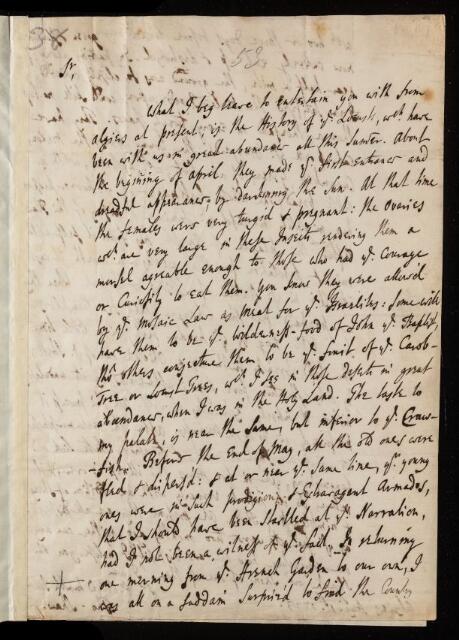 38
52
Sr,
What I beg leave to entertain you with from
algiers at present, is the History of ye Locusts, wch. have
been with us in great abundance all this Sumer. About
the beginning of april they made ye. first entrance and
dreadful appearance, by darkening the Sun. At that time
the females were very turgid & pregnant: the Ovaries
wch. are very large in these Insects rendering them a
morsel agreeable enough to those who had ye. Courage
or Curiosity to eat them. You know they were allowed
by ye. Mosaic Law as meat for ye. Israelites: Some will
have them to be ye. wilderness-food of John ye. Baptist,
tho' others conjecture them to be ye. fruit of ye. Carob-
Tree or Locust Trees, wch. I see in those deserts in great
abundance, when I was in the Holy Land. The taste to
my palate, is near the same, but inferior to ye. Craw-
-fish. Before the End of May, all the old ones were
fled & dispers'd: & at or near ye. same time, ye. young
ones were in such prodigious & Extravagent Armadas,
that I should have been startled at ye. Narration,
had I not been a witness of ye. fact. In returning
one morning from ye. French Garden to our own, I
was all on a suddain surprized to find the Country